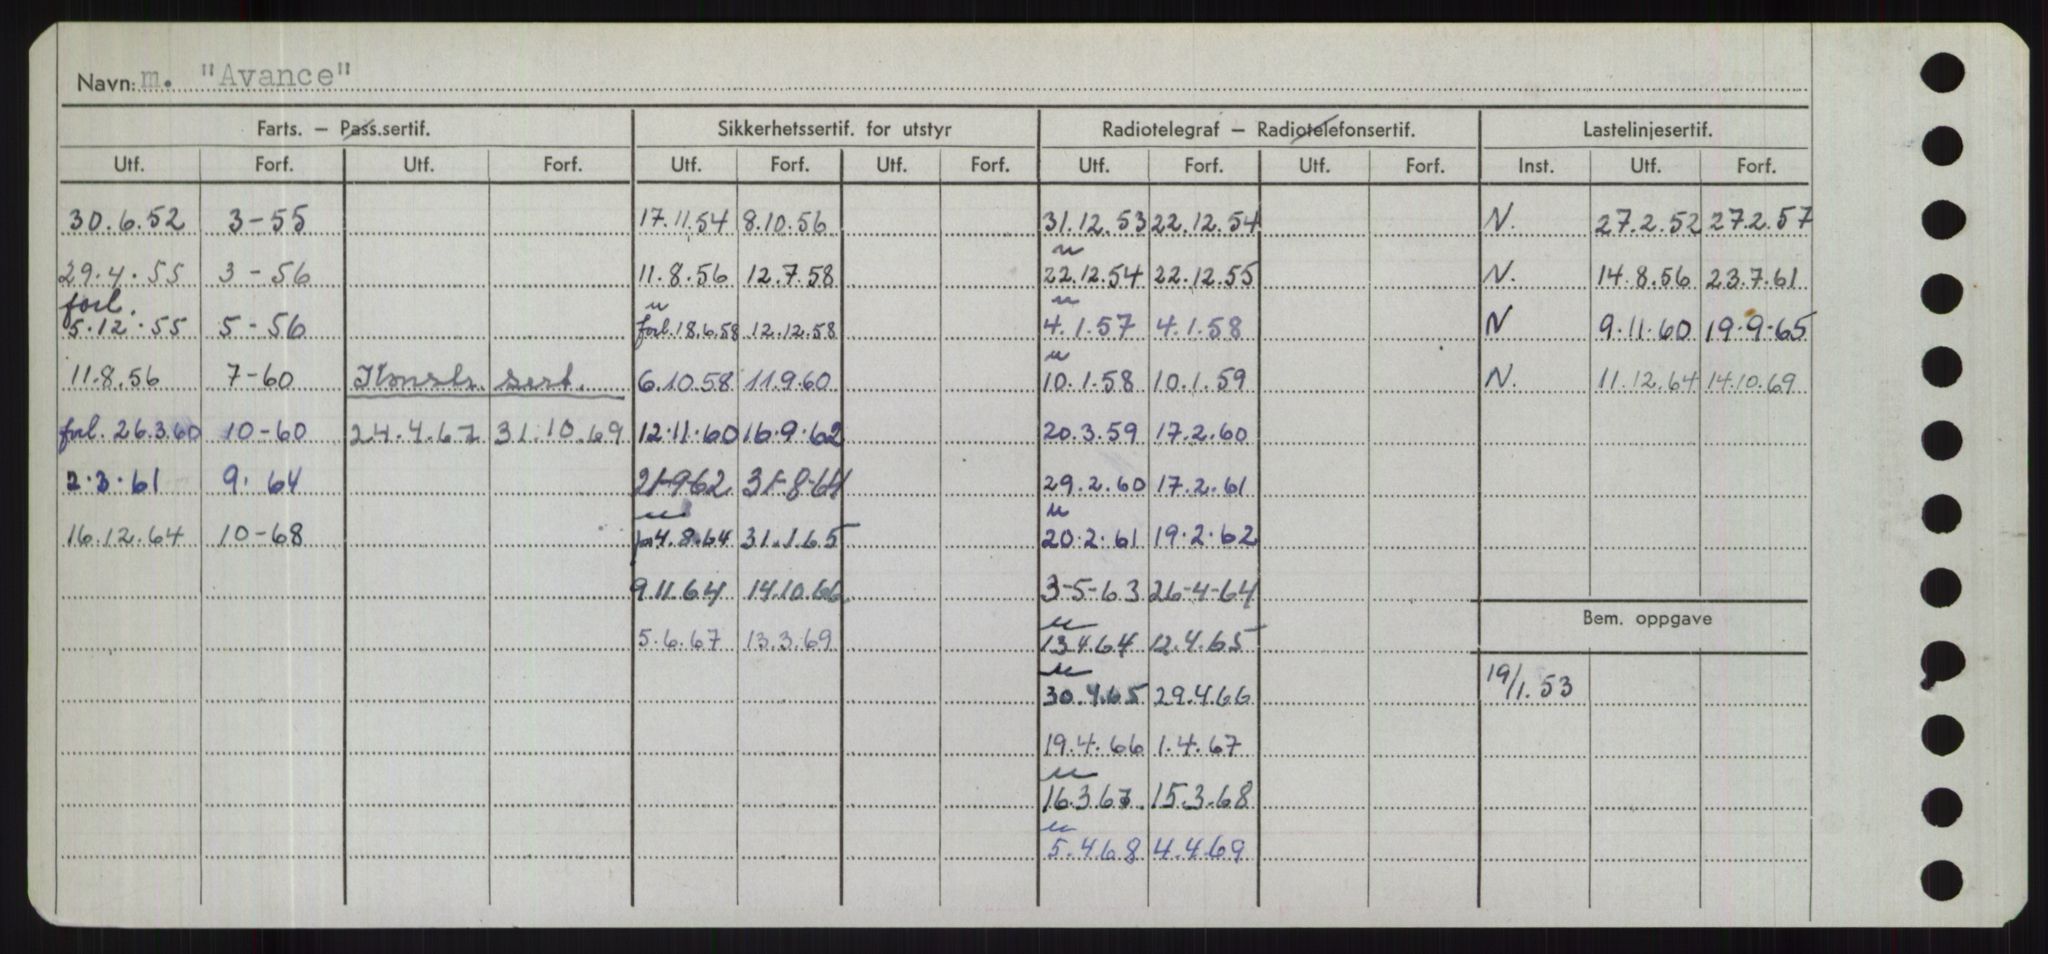 Navn: m. "Avance"
Farts. — Pass.sertif. Sikkerhetssertif. for utstyr Radiotelegraf — Radiotelefonsertif. Lastelinjesertif.
Utf. Forf. Utf. Forf. Utf. Forf. Utf. Forf. Utf. Forf. Utf. Forf. Inst. Utf. Forf.
30.6.52 3-55 17.11.54 8.10.56 31.12.53 22.12.54 N. 27.2.52 27.2.57
29.4.55 3-56 11.8.56 12.7.58 22.12.54 22.12.55 N. 14.8.56 23.7.61
forl.
5.12.55 5-56 forl.18.6.58 12.12.58 4.1.57 4.1.58 N 9.11.60 19.9.65
11.8.56 7-60 Konstr. sert. 6.10.58 11.9.60 10.1.58 10.1.59 N. 11.12.64 14.10.69
forl. 26.3.60 10-60 24.4.67 31.10.69 12.11.60 16.9.62 20.3.59 17.2.60
2.3.61 9.64 21-9-62 31-8-64 29.2.60 17.2.61
16.12.64 10-68 4.8.64 31.1.65 20.2.61 19.2.62
9.11.64 14.10.66 3-5-63 26-4-64
Bem. oppgave
5.6.67 13.3.69 13.4.64 12.4.65
30.4.65 29.4.66 19/1.53
19.4.66 1.4.67
16.3.67 15.3.68
5.4.68 4.4.69